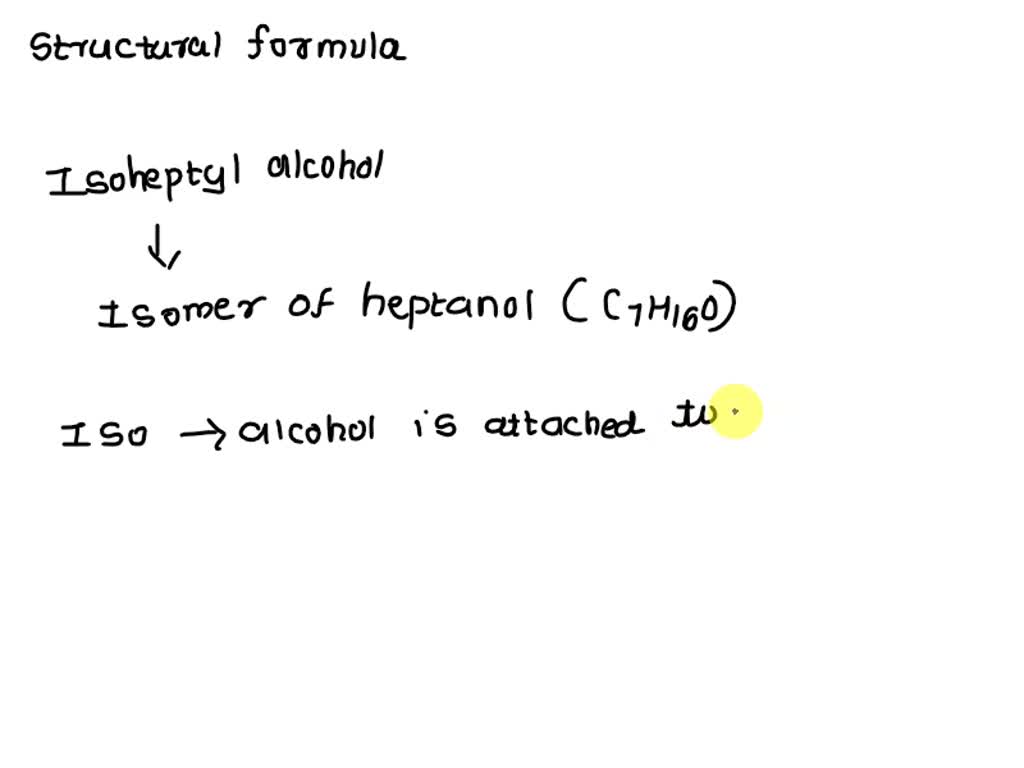 Structural formula
Isoheptyl alcohol
Isomer of heptanol (C7H16O)
Iso → alcohol is attached to